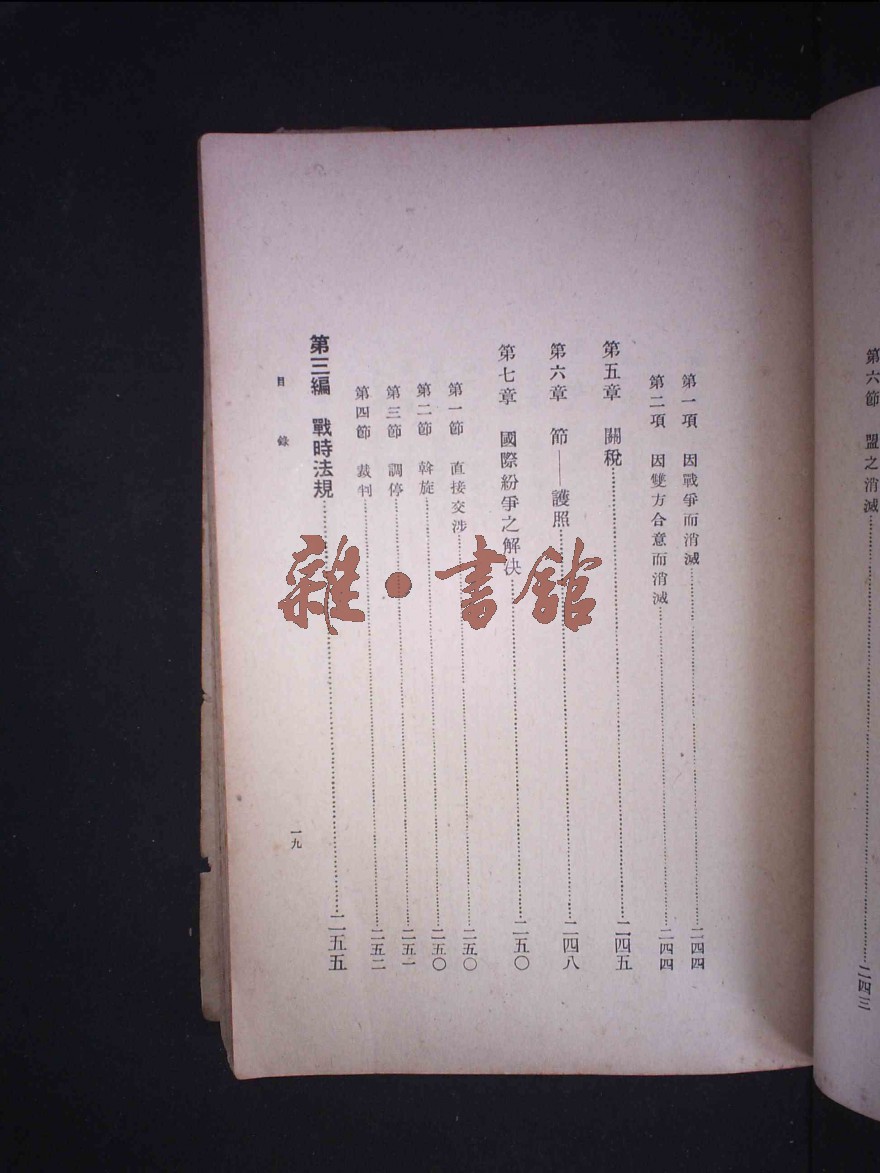 第六節 盟之消滅……二四三
第一項 因戰爭而消滅……二四四
第二項 因雙方合意而消滅……二四四
第五章 關稅……二四五
第六章 節——護照……二四八
第七章 國際紛爭之解決……二五〇
第一節 直接交涉……二五〇
第二節 斡旋……二五〇
第三節 調停……二五一
第四節 裁判……二五二
第三編 戰時法規……二五五
目錄
一九
雜·書館